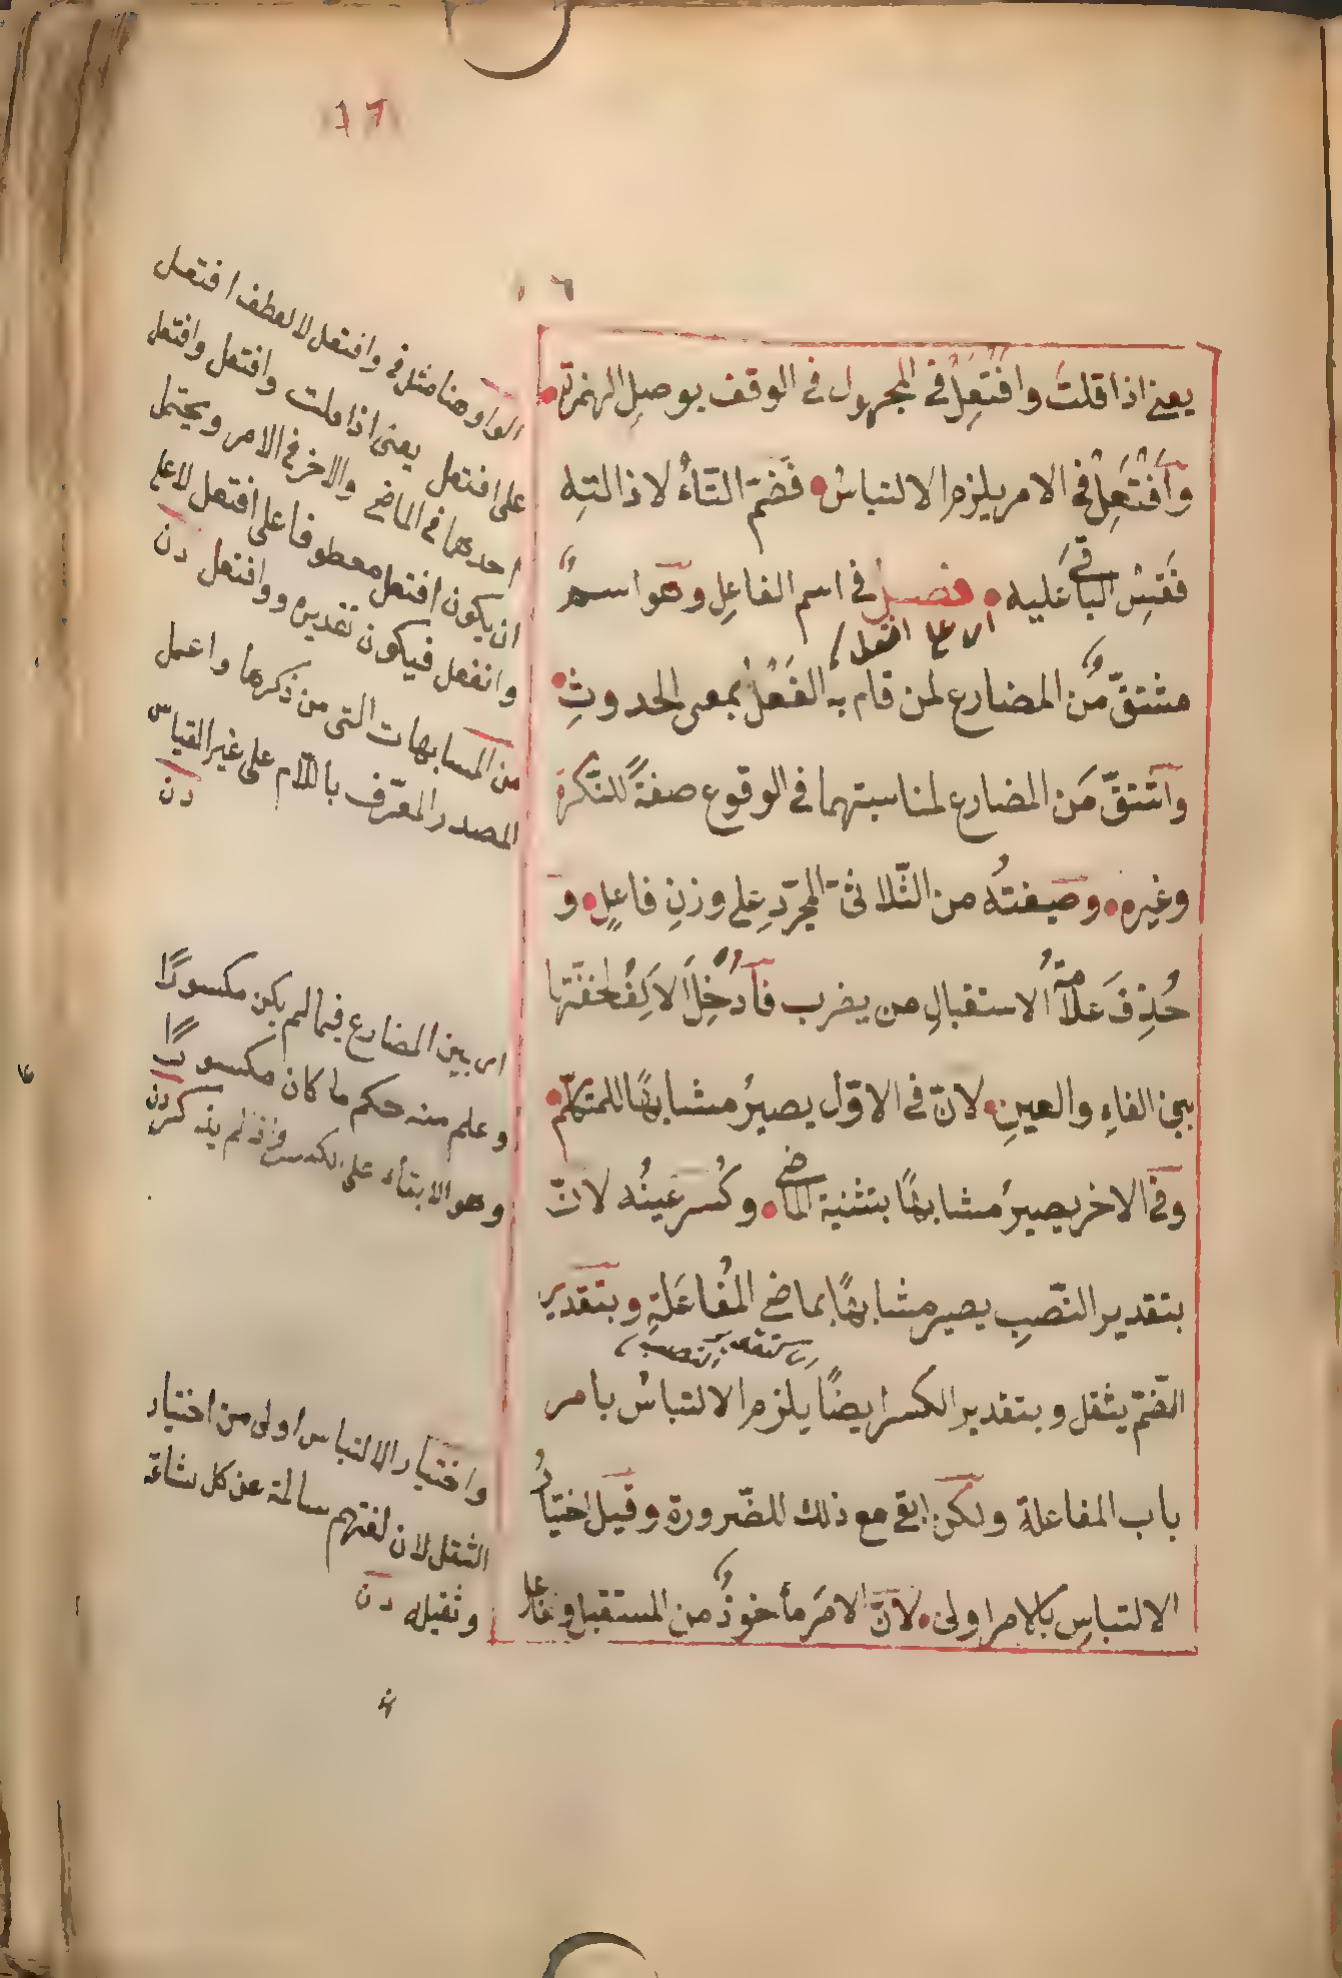 ١٦
١٦
يعنى اذا قلتَ وافْتُعِلْ فى المجهول فى الوقف بوصلِ الهمزة
وَافْتَعِلْ فى الامر يلزم الالتباسُ فَضُمّ التّاءُ لا ذالته
فَقِسْ الباقى عَليه فصل فى اسم الفاعِلِ وهو اسمٌ
مشتقٌّ من المضارع لمن قام به الفعلُ بمعنى الحدوثِ
واشتقّ مَن المضارع لمناسبتهما فى الوقوع صفةً للنّكرة
وغيره وصيغتُه من الثّلاثىّ المجرّدِ على وزنِ فاعلٍ و
حُذِفَ عَلامةُ الاستقبالِ من يضرب فاُدْخِلَ الاَلِفُ لخفّتها
بين الفاءِ والعينِ لانّ فى الاوّل يصيرُ مشابهًا للمتكلّم
وفى الاخر يصيرُ مشابهًا بتثنية الماضى وكُسر عينُه لانّ
بتقدير النّصبِ يصير مشابهًا بماضى المُفاعَلةِ وبتقدير
الضّمّ يثقل وبتقدير الكسر ايضًا يلزم الالتباسُ بامر
باب المفاعلةِ ولكن ابقى مع ذلك للضّرورة وقيل اختيارُ
الالتباسِ بالامر اولى لانّ الامرَ مأخوذٌ من المستقبل
الواو هنا مثل فى وافتعل لا لعطف افتعل
على افتعل يعنى اذا قلت وافتعل وافتعل
احدهما فى الماضى والاخر فى الامر ويحتمل
ان يكون افتعل معطوفا على افتعل لا على
وانفعل فيكون تقديره ووافتعل
من المشابهات التى من ذكرها واعمل
المصدر المعرّف باللّام على غير القياس
اى بين المضارع فيما لم يكن مكسورًا
وعلم منه حكم ما كان مكسورًا
وهو الابقاء على الكسر اذ لم يذكر
واختيار الالتباس اولى من اختيار
الثقل لان لغتهم سالمة عن كل
وثقيله